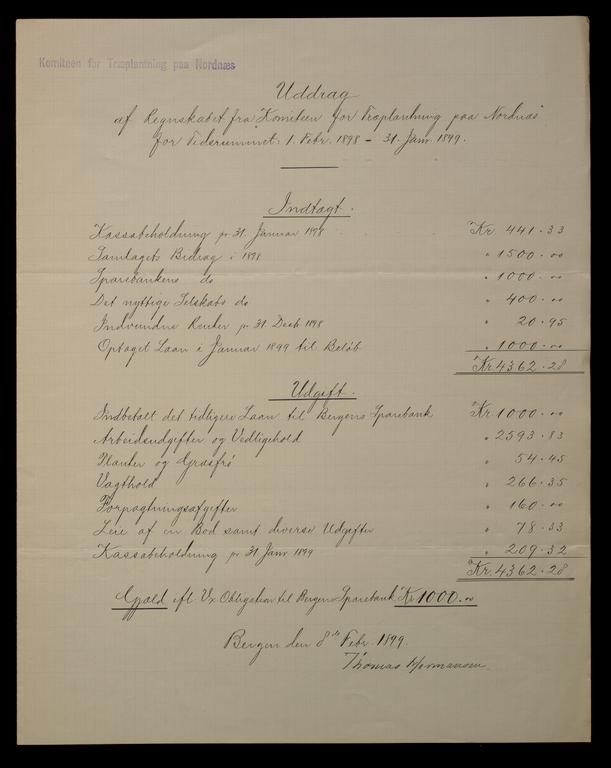 Komiteen for Træplantning paa Nordnæs
Uddrag
af Regnskabet fra "Komiteen for Træplantning paa Nordnæs"
for Tidsrummet: 1. Febr. 1898 - 31. Janr. 1899.
Indtægt.
Kassabeholdning pr 31. Januar 1898 Kr. 441.33
Samlagets Bidrag i 1898 " 1500.00
Sparebankens do " 1000.00
Det nyttige Selskabs do " 400.00
Indvundne Renter pr 31. Decb 1898 " 20.95
Optaget Laan i Januar 1899 til Beløb " 1000.00
Kr. 4362.28
Udgift.
Indbetalt det tidligere Laan til Bergens Sparebank Kr. 1000.00
Arbeidsudgifter og Vedligehold " 2593.83
Planter og Græsfrø " 54.45
Vagthold " 266.35
Forpagtningsafgifter " 160.00
Leie af en Bod samt diverse Udgifter " 78.33
Kassabeholdning pr 31 Janr 1899 " 209.32
Kr. 4362.28
Gjæld ifl. Vx. Obligation til Bergens Sparebank Kr 1000.00
Bergen den 8de Febr. 1899.
Thomas Hermansen.